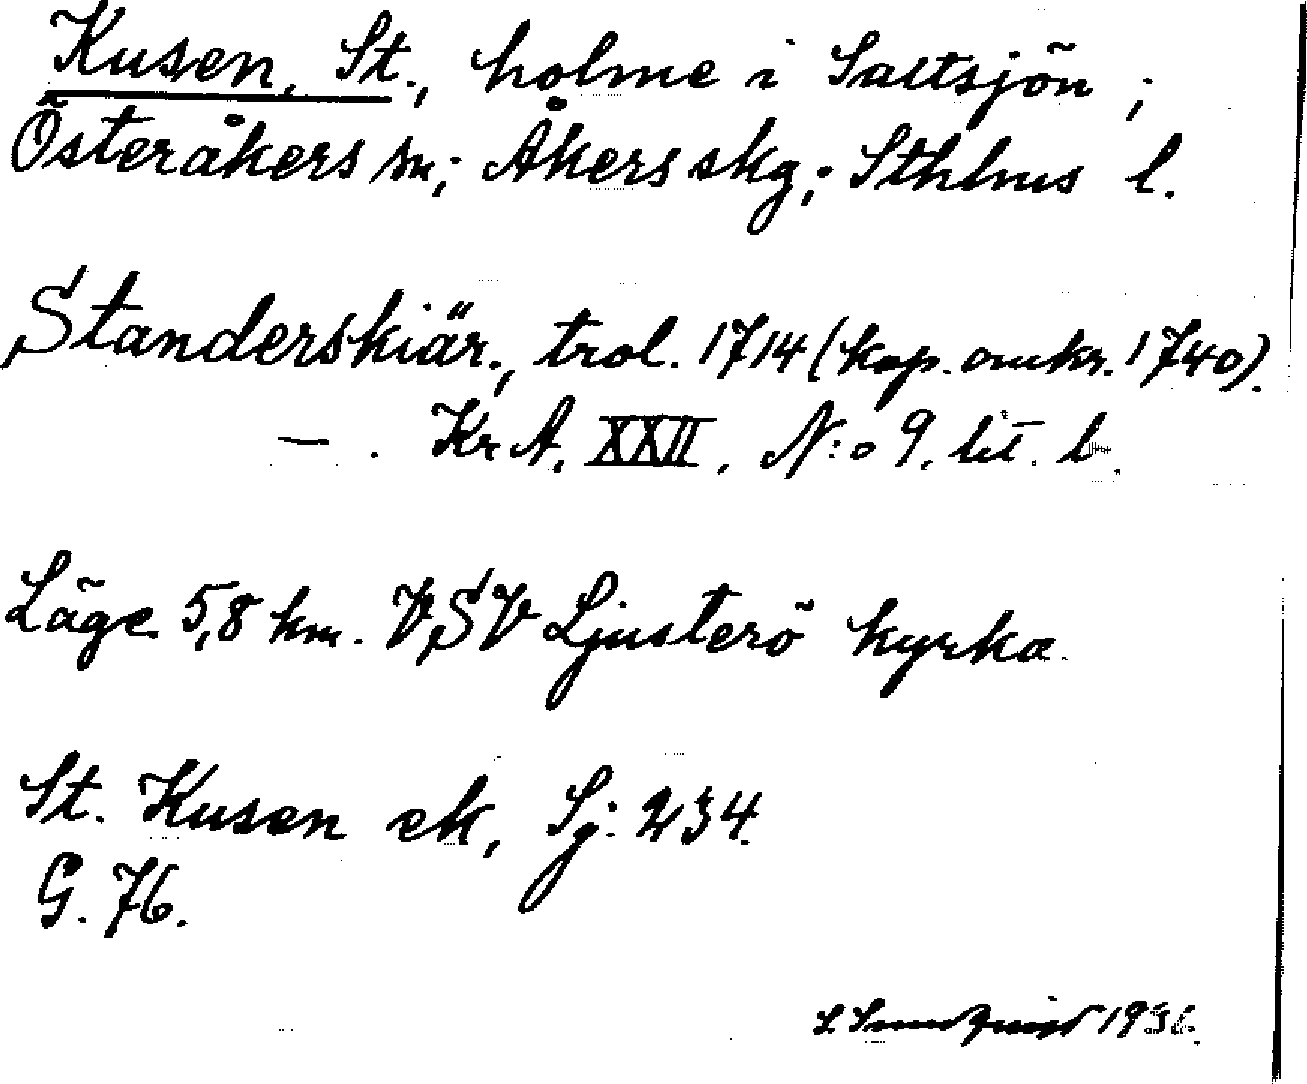 Kusen, St., holme i Saltsjön;
Österåkers sn; Åkers skg; Sthlms l.
Standerskiär, trol. 1714 (kop. omkr. 1740).
— . Kr A. XXII. N:o 9. lit. b.
Läge 5,8 km. VSV Ljusterö kyrka.
St. Kusen ek, Sj. 234.
G. 76.
S. Sundquist 1936.